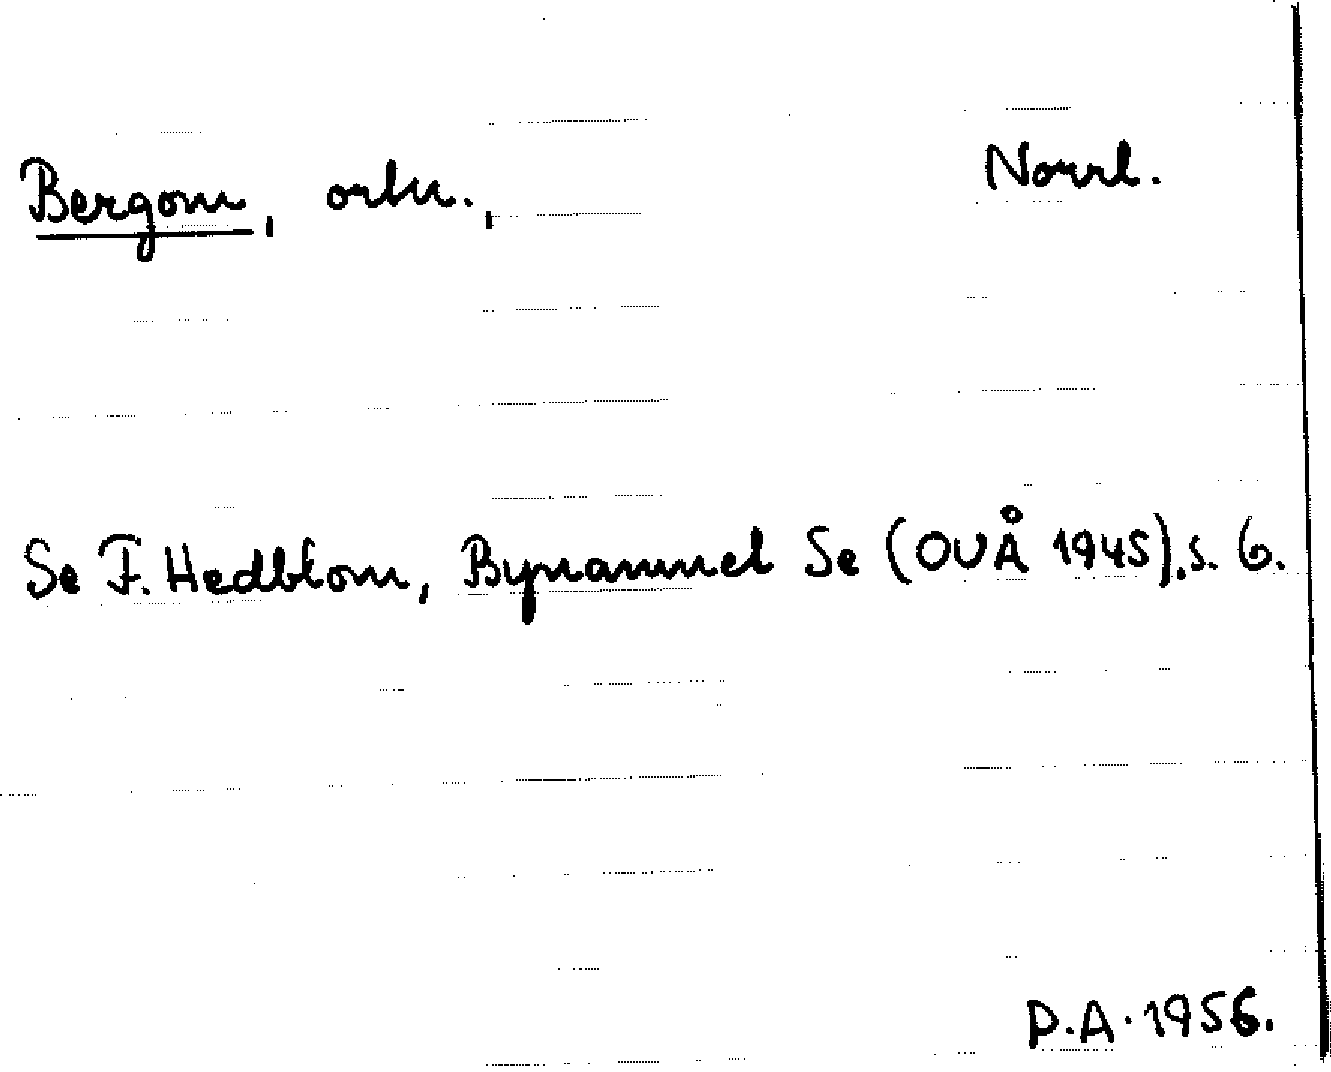 Bergom, ortn., Norrl.
Se F. Hedblom, Bynamnet Se (OUÅ 1945), s. 6.
D.A. 1956.